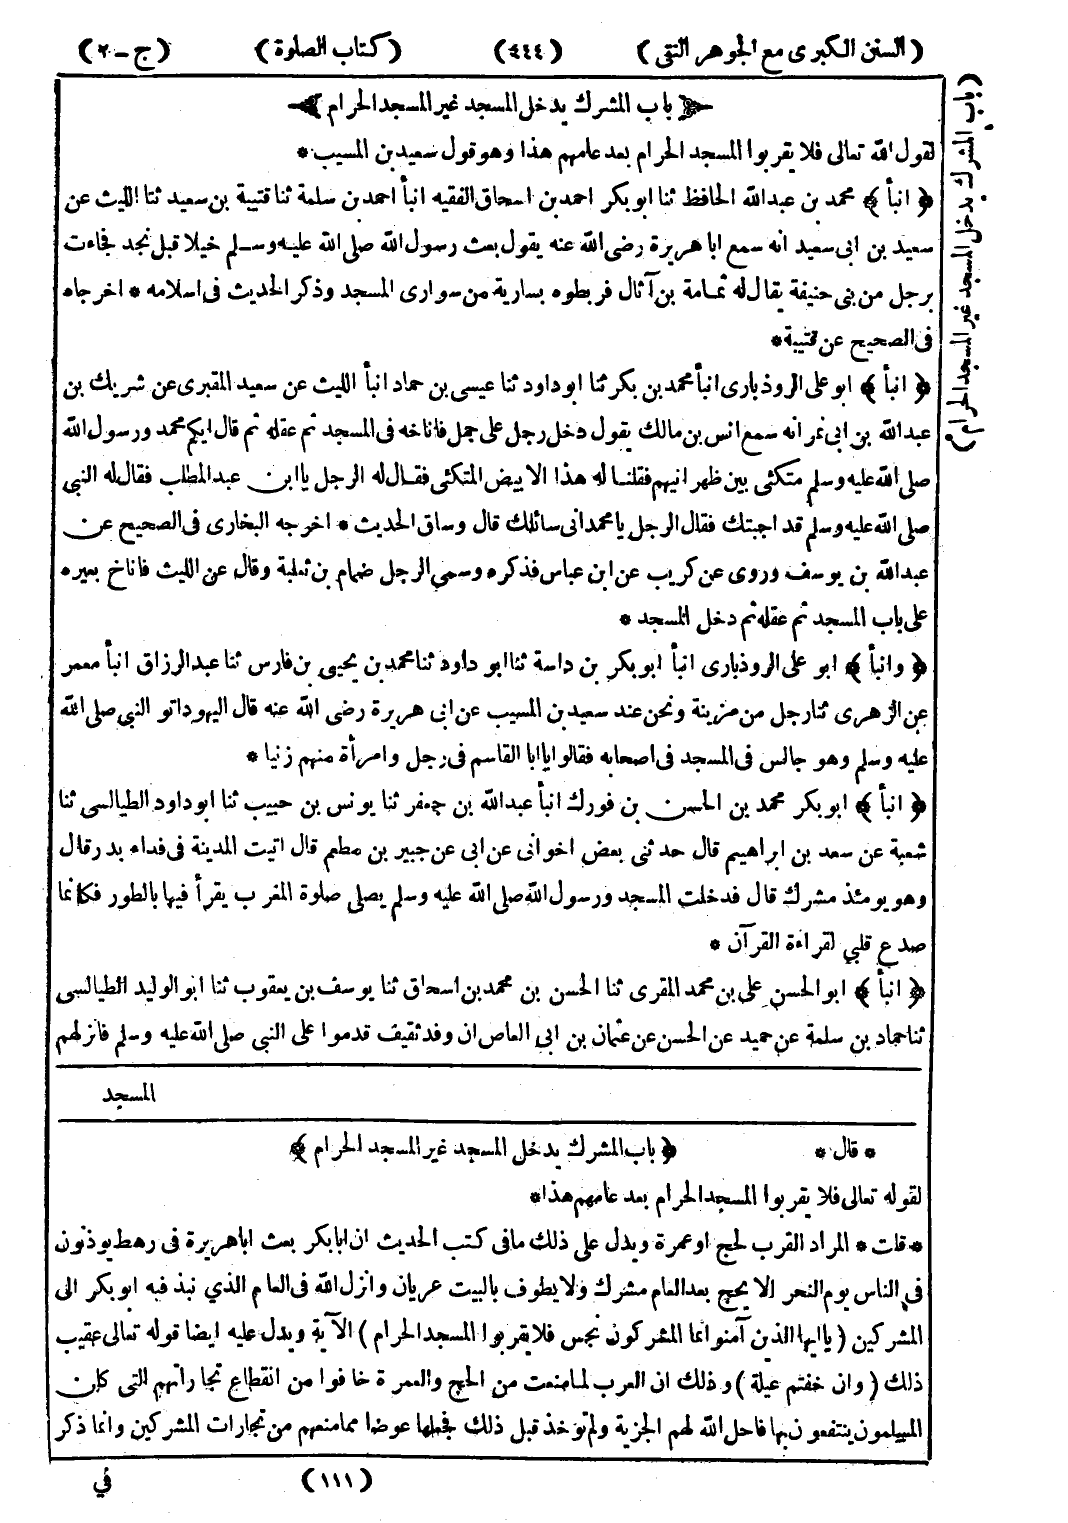 (السنن الكبرى مع الجوهر النقى) (٤٤٤) (كتاب الصلوة) (ج-٢)
(باب المشرك يدخل المسجد غير المسجد الحرام)
﴿ باب المشرك يدخل المسجد غير المسجد الحرام ﴾
لقول الله تعالى فلا يقربوا المسجد الحرام بعد عامهم هذا وهو قول سعيد بن المسيب *
﴿ انبأ ﴾ محمد بن عبدالله الحافظ ثنا ابو بكر احمد بن اسحاق الفقيه انبأ احمد بن سلمة ثنا قتيبة بن سعيد ثنا الليث عن
سعيد بن ابى سعيد انه سمع ابا هريرة رضى الله عنه يقول بعث رسول الله صلى الله عليه وسلم خيلا قبل نجد فجاءت
برجل من بنى حنيفة يقال له ثمامة بن آثال فربطوه بسارية من سوارى المسجد وذكر الحديث فى اسلامه * اخرجاه
فى الصحيح عن قتيبة *
﴿ انبأ ﴾ ابو على الروذبارى انبأ محمد بن بكر ثنا ابو داود ثنا عيسى بن حماد انبأ الليث عن سعيد المقبرى عن شريك بن
عبدالله بن ابى نمر انه سمع انس بن مالك يقول دخل رجل على جمل فاناخه فى المسجد ثم عقله ثم قال ايكم محمد ورسول الله
صلى الله عليه وسلم متكئى بين ظهرانيهم فقلنا له هذا الابيض المتكئى فقال له الرجل يا ابن عبدالمطلب فقال له النبي
صلى الله عليه وسلم قد اجبتك فقال الرجل يا محمد انى سائلك قال وساق الحديث * اخرجه البخارى فى الصحيح عن
عبدالله بن يوسف وروى عن كريب عن ابن عباس فذكره وسمى الرجل ضمام بن ثعلبة وقال عن الليث فاناخ بعيره
على باب المسجد ثم عقله ثم دخل المسجد *
﴿ وانبأ ﴾ ابو على الروذبارى انبأ ابو بكر بن داسة ثنا ابو داود ثنا محمد بن يحيى بن فارس ثنا عبدالرزاق انبأ معمر
عن الزهرى ثنا رجل من مزينة ونحن عند سعيد بن المسيب عن ابى هريرة رضى الله عنه قال اليهود اتو النبي صلى الله
عليه وسلم وهو جالس فى المسجد فى اصحابه فقالوا يا ابا القاسم فى رجل وامرأة منهم زنيا *
﴿ انبأ ﴾ ابو بكر محمد بن الحسن بن فورك انبأ عبدالله بن جعفر ثنا يونس بن حبيب ثنا ابو داود الطيالسى ثنا
شعبة عن سعد بن ابراهيم قال حدثنى بعض اخوانى عن ابى عن جبير بن مطعم قال اتيت المدينة فى فداء بدر قال
وهو يومئذ مشرك قال فدخلت المسجد ورسول الله صلى الله عليه وسلم يصلى صلوة المغرب يقرأ فيها بالطور فكانما
صدع قلبي لقراءة القرآن *
﴿ انبأ ﴾ ابو الحسن على بن محمد المقرى ثنا الحسن بن محمد بن اسحاق ثنا يوسف بن يعقوب ثنا ابو الوليد الطيالسى
ثنا حماد بن سلمة عن حميد عن الحسن عن عثمان بن ابى العاص ان وفد ثقيف قدموا على النبى صلى الله عليه وسلم فانزلهم
المسجد
* قال * ﴿ باب المشرك يدخل المسجد غير المسجد الحرام ﴾
لقوله تعالى فلا يقربوا المسجد الحرام بعد عامهم هذا *
* قلت * المراد القرب لحج او عمرة ويدل على ذلك ما فى كتب الحديث ان ابا بكر بعث ابا هريرة فى رهط يوذنون
فى الناس يوم النحر الا يحج بعد العام مشرك ولا يطوف بالبيت عريان وانزل الله فى العام الذي نبذ فيه ابو بكر الى
المشركين (يا ايها الذين آمنوا انما المشركون نجس فلا يقربوا المسجد الحرام) الآية ويدل عليه ايضا قوله تعالى عقيب
ذلك (وان خفتم عيلة) وذلك ان العرب لما منعت من الحج والعمرة خافوا من انقطاع تجاراتهم التى كان
المسلمون ينتفعون بها فاحل الله لهم الجزية ولم توخذ قبل ذلك فجعلها عوضا مما منعهم من تجارات المشركين وانما ذكر
(١١١) في